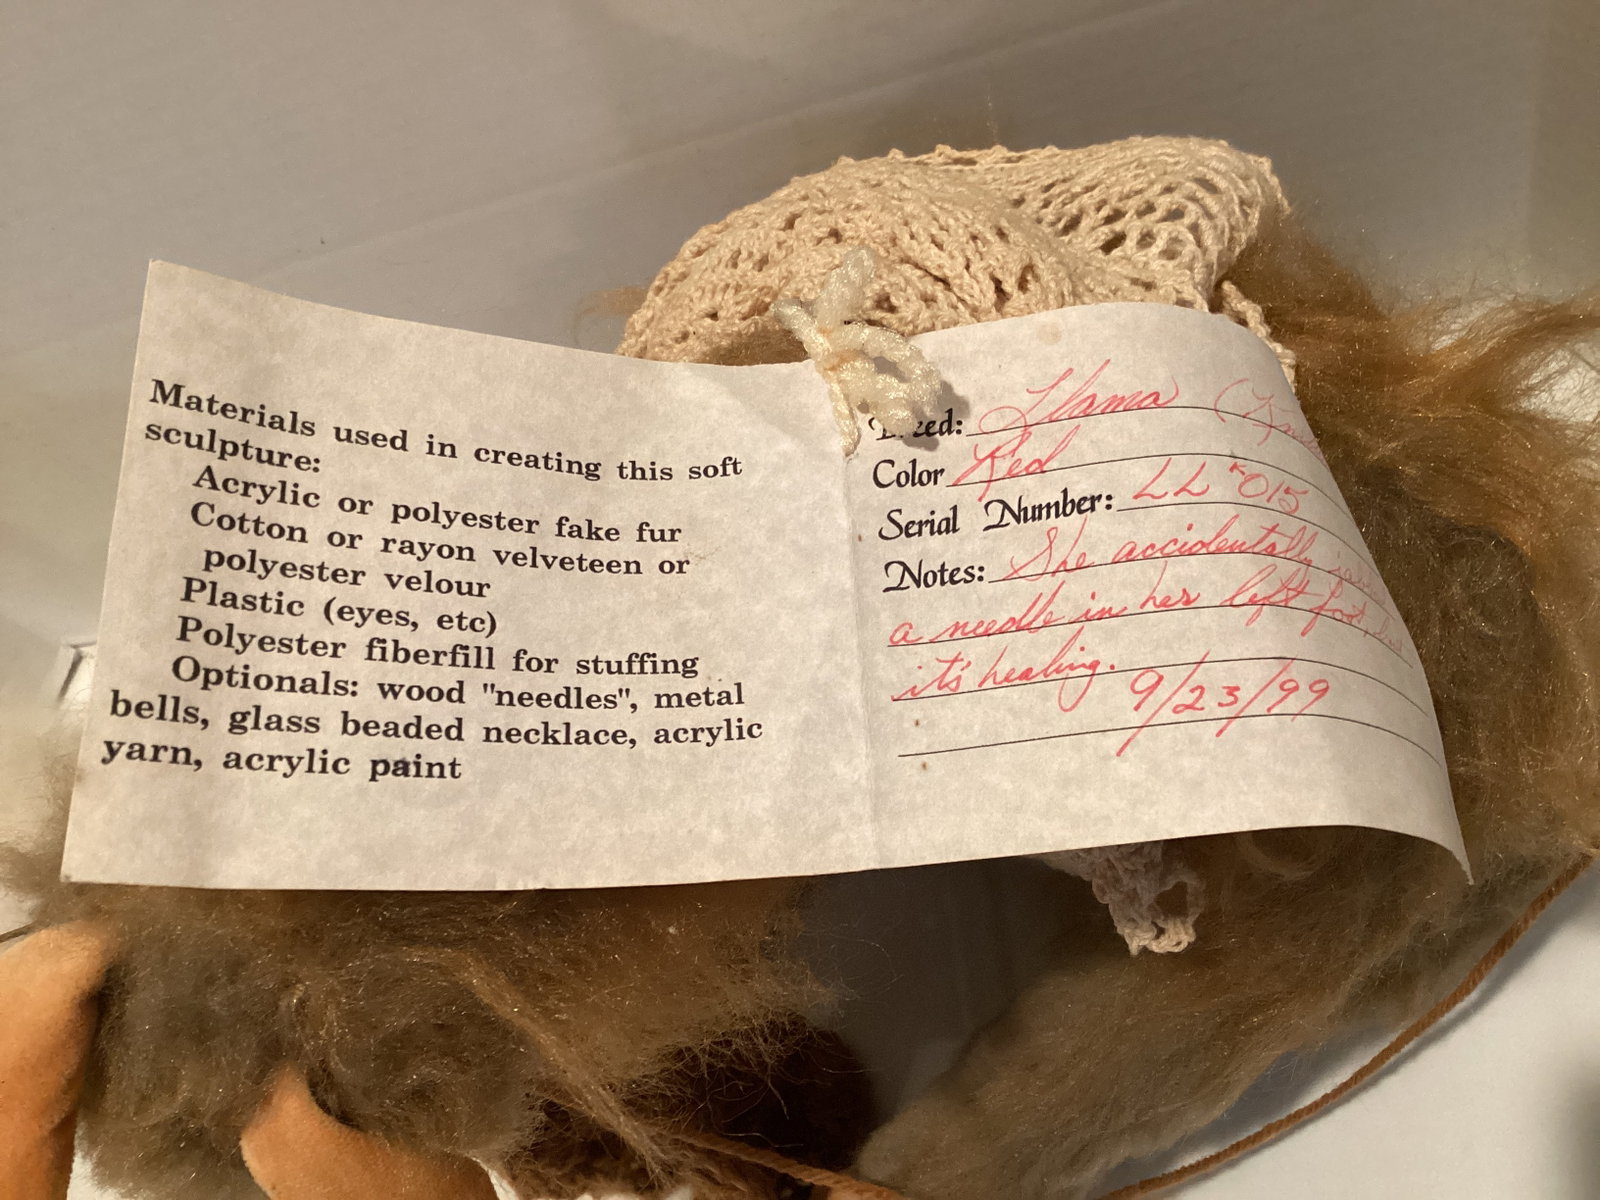 Materials used in creating this soft
sculpture:
Acrylic or polyester fake fur
Cotton or rayon velveteen or
polyester velour
Plastic (eyes, etc)
Polyester fiberfill for stuffing
Optionals: wood "needles", metal
bells, glass beaded necklace, acrylic
yarn, acrylic paint
Breed: Llama
Color Red
Serial Number: LL K015
Notes: She accidentally
a needle in her left foot, but
it's healing.
9/23/99